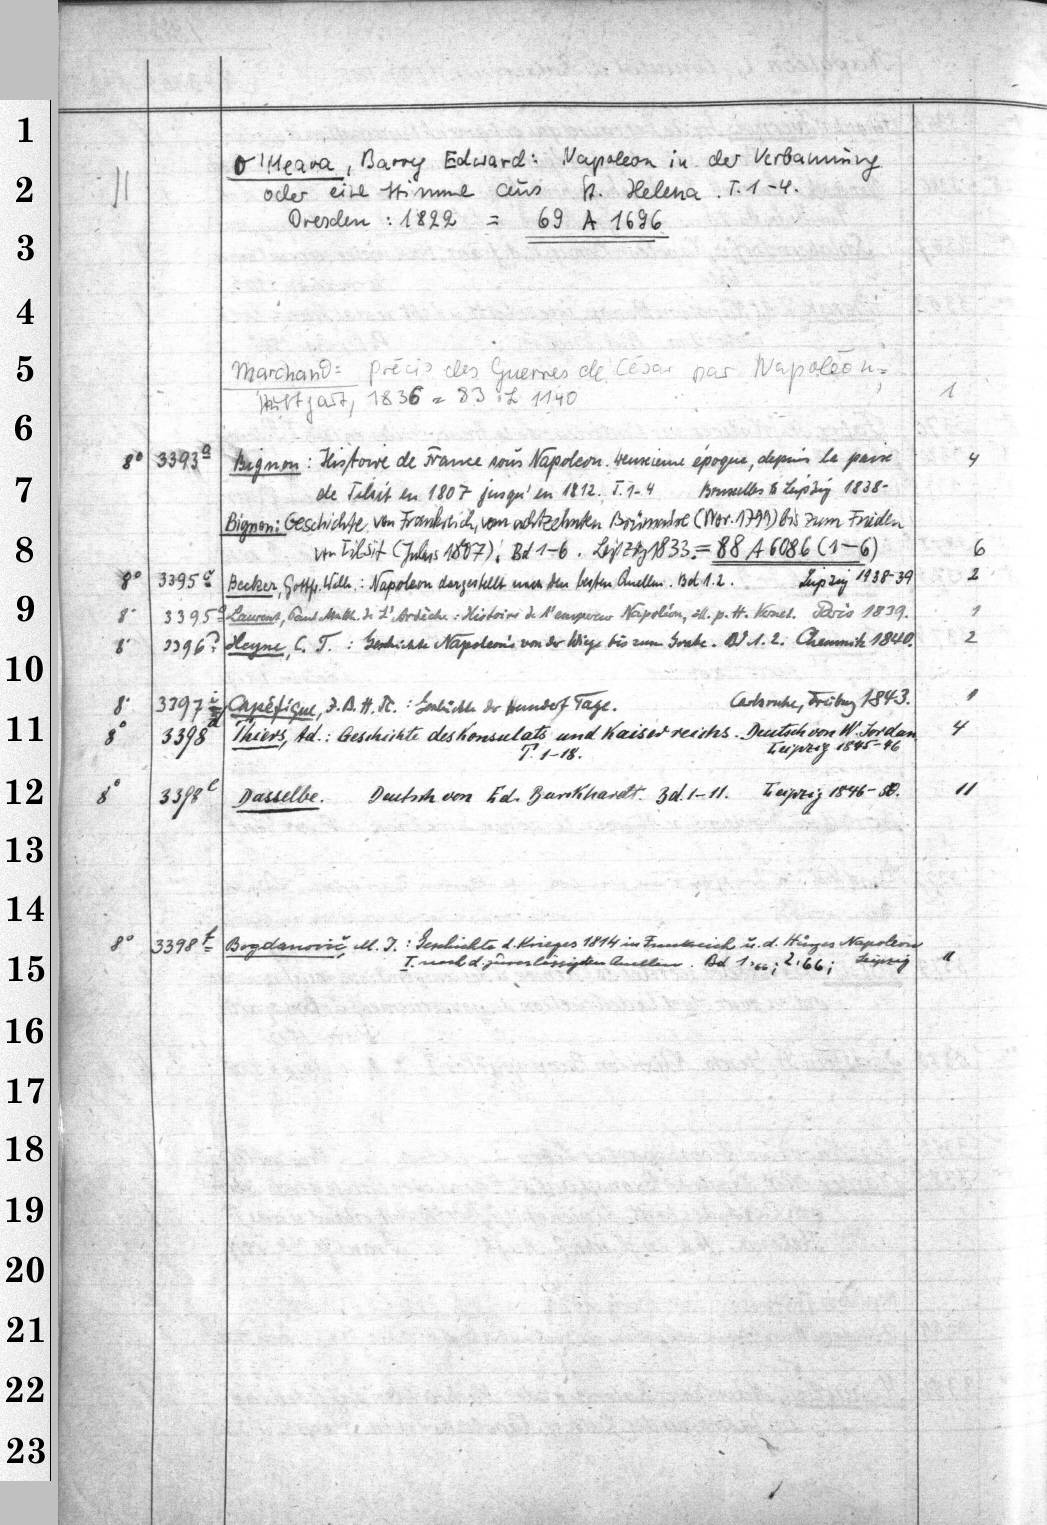 1
2
3
4
5
6
7
8
9
10
11
12
13
14
15
16
17
18
19
20
21
22
23
O'Meara, Barry Edward: Napoleon in der Verbannung
oder eine Stimme aus St. Helena. T. 1-4.
Dresden: 1822 = 69 A 1696
Marchand: Précis des Guerres de César par Napoléon;
Stuttgart, 1836 = 83 L 1140 1
8° 3393a Bignon: Histoire de France sous Napoleon. Deuxieme époque, depuis la paix 4
de Tilsit en 1807 jusqu'en 1812. T. 1-4 Bruxelles & Leipzig 1838-
Bignon: Geschichte von Frankreich, vom achtzehnten Brümaire (Nov. 1799) bis zum Frieden
von Tilsit (Julius 1807). Bd 1-6. Leipzig 1833. = 88 A 6086 (1-6) 6
8° 3395 Becker, Gottfr. Wilh.: Napoleon dargestellt nach den besten Quellen. Bd 1.2. Leipzig 1938-39 2
8° 3395 Laurent, Paul Math. de L'Ardèche: Histoire de l'empereur Napoléon, ill. p. H. Vernet. Paris 1839. 1
8° 3396 Heyne, C. T.: Geschichte Napoleons von der Wiege bis zum Grabe. Bd 1. 2. Chemnitz 1840. 2
8° 3397 Capéfigue, J. B. H. R.: Geschichte der Hundert Tage. Carlsruhe, Freiburg 1843. 1
8° 3398d Thiers, Ad.: Geschichte des Konsulats und Kaiserreichs. Deutsch von W. Jordan 4
T. 1-18. Leipzig 1845-46
8° 3398e Dasselbe. Deutsch von Ed. Burckhardt. Bd. 1-11. Leipzig 1846-50. 11
8° 3398f Bogdanovič, M. I.: Geschichte d. Krieges 1814 in Frankreich u. d. Sturzes Napoleon
I. nach d. zuverlässigsten Quellen. Bd 1.66; 2.66; Leipzig